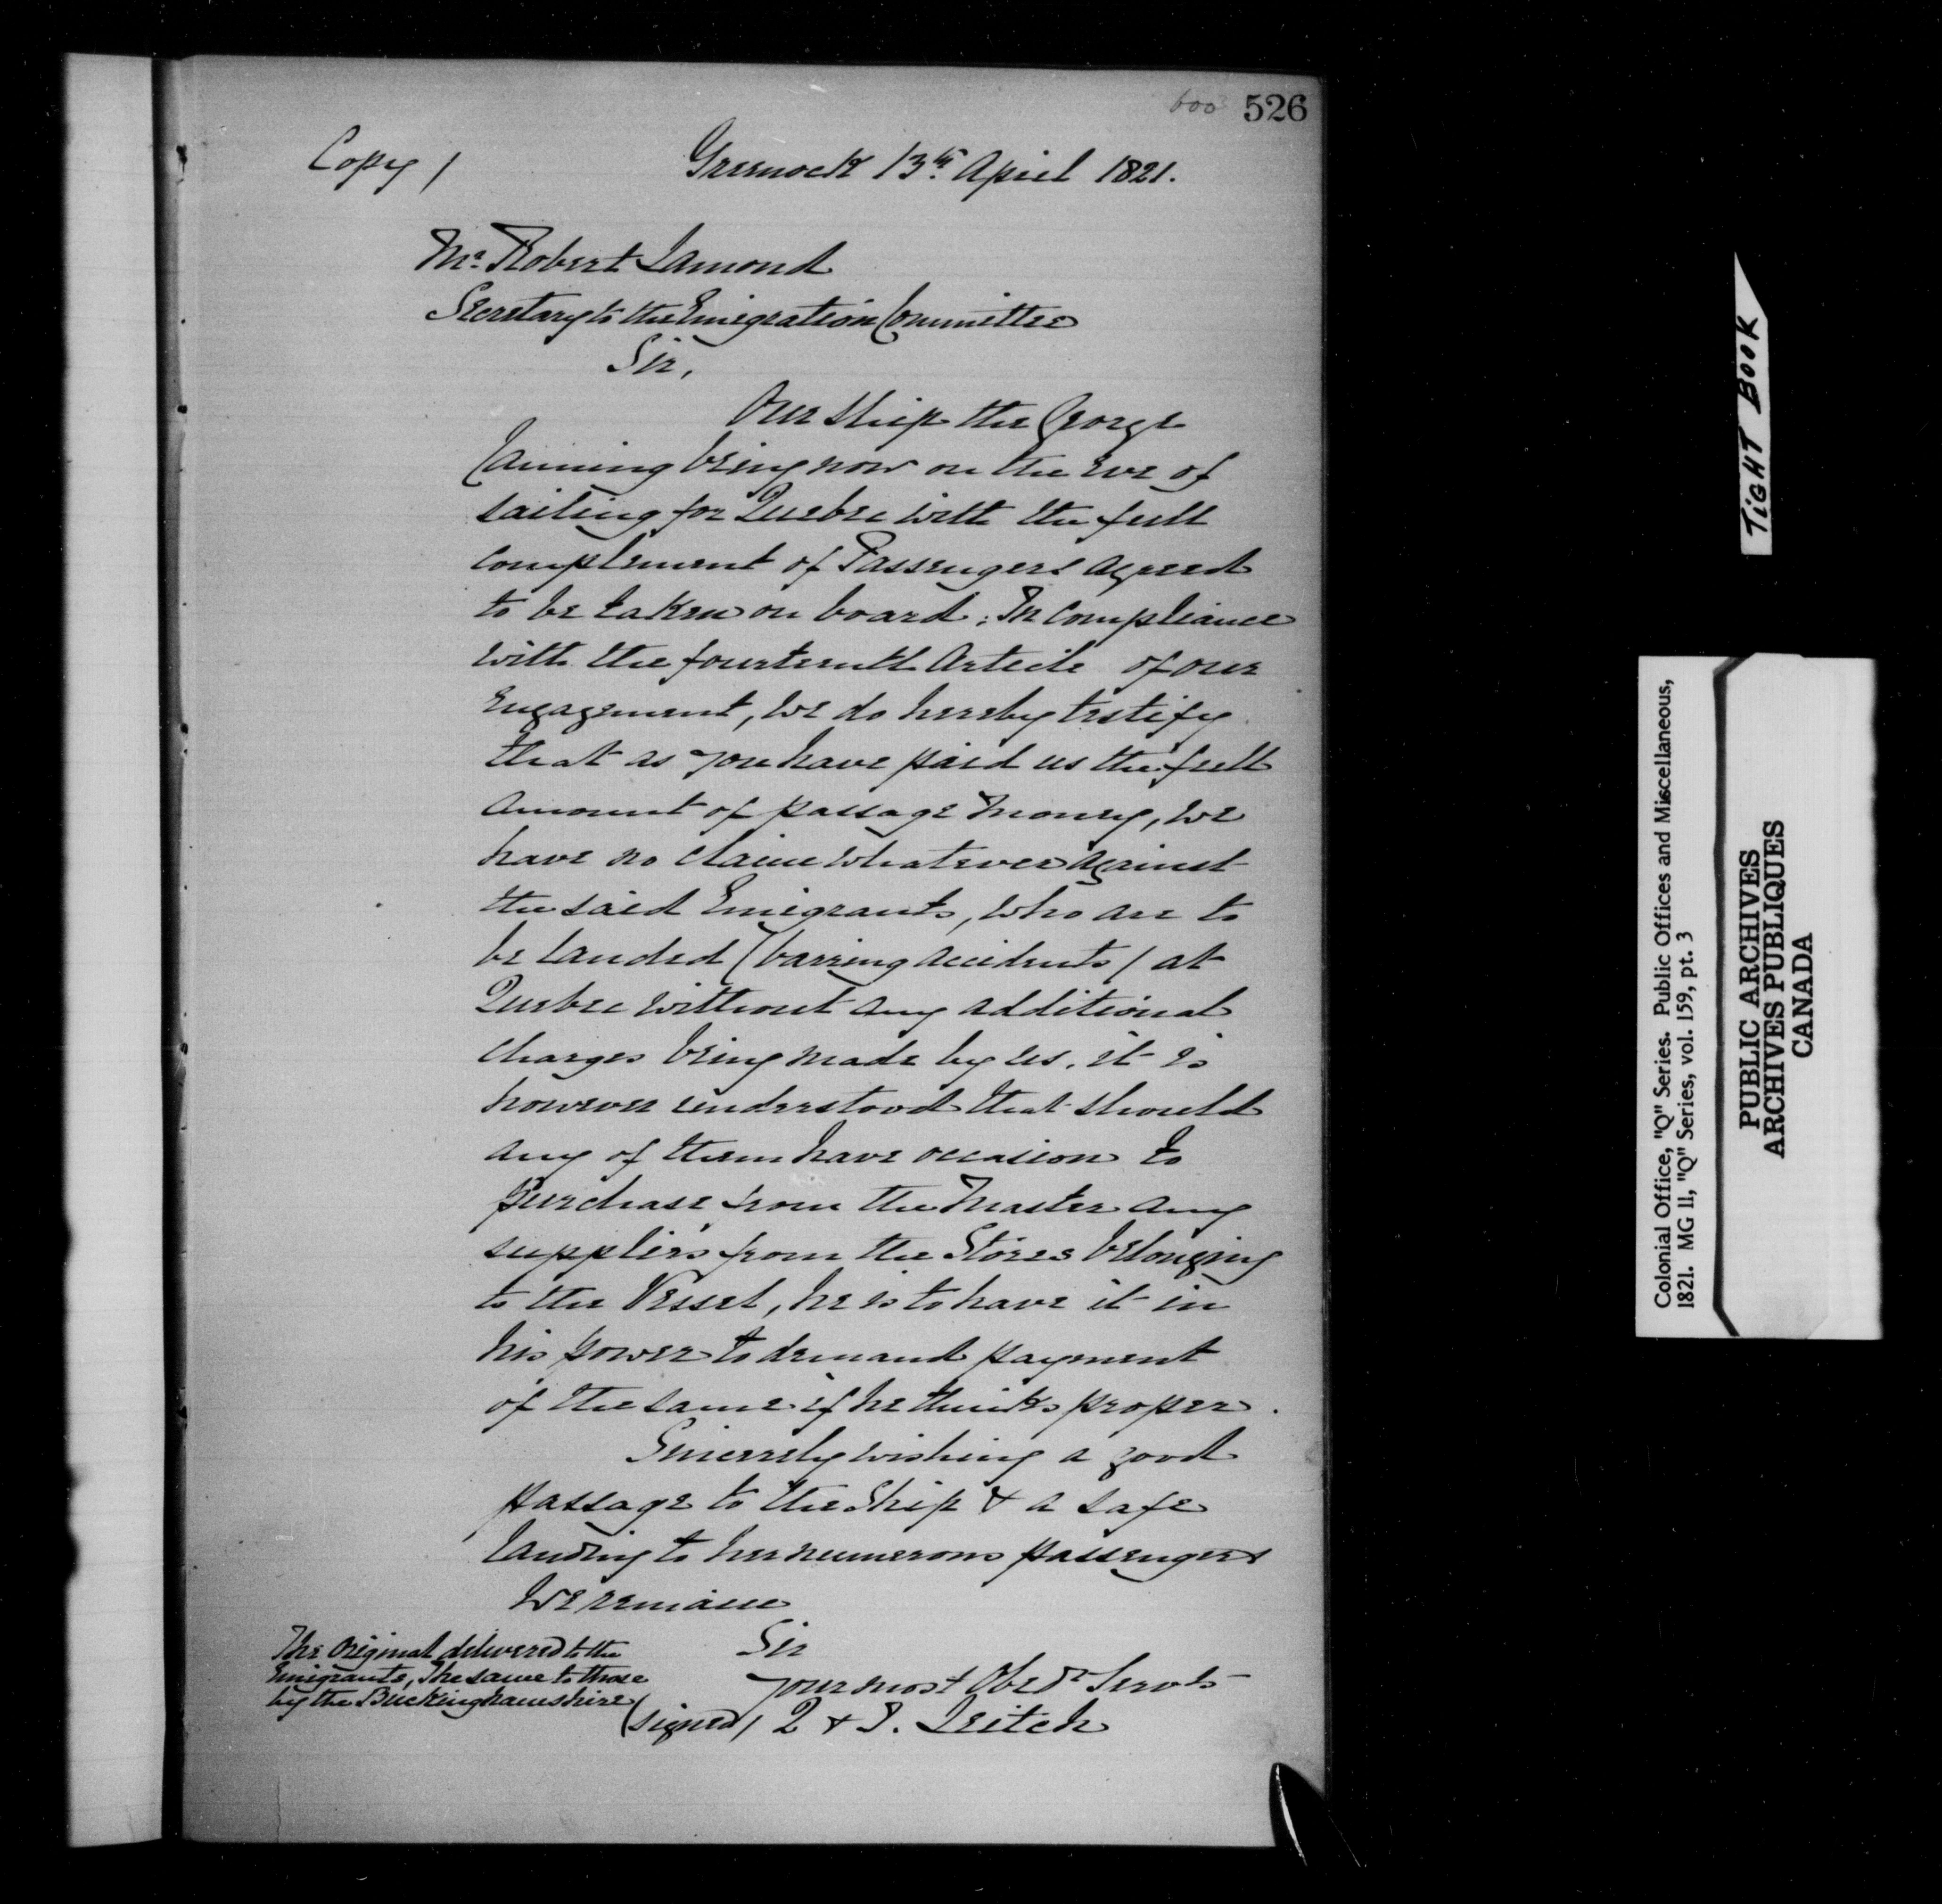 600 526
Copy / Greenock 13th April 1821.
Mr. Robert Lamond
Secretary to the Emigration Committee
Sir,
Our Ship the George
Canning being now on the eve of
sailing for Quebec with the full
complement of Passengers agreed
to be taken on board; In compliance
with the fourteenth Article of our
Engagement, we do hereby testify
that as you have paid us the full
amount of passage money, we
have no claim whatever against
the said Emigrants, who are to
be landed (barring accidents) at
Quebec without any additional
charges being made by us. it is
however understood that should
any of them have occasion to
purchase from the Master any
supplies from the Stores belonging
to the Vessel, he is to have it in
his power to demand payment
of the same if he thinks proper.
Sincerely wishing a good
passage to the Ship & a safe
landing to her numerous passengers
We remain
Sir
Your most Obedt Servts
(signed) Q & J. Leitch
The Original delivered to the
Emigrants, The same to those
by the Buckinghamshire
TIGHT BOOK
Colonial Office, "Q" Series. Public Offices and Miscellaneous,
1821. MG 11, "Q" Series, vol. 159, pt. 3
PUBLIC ARCHIVES
ARCHIVES PUBLIQUES
CANADA